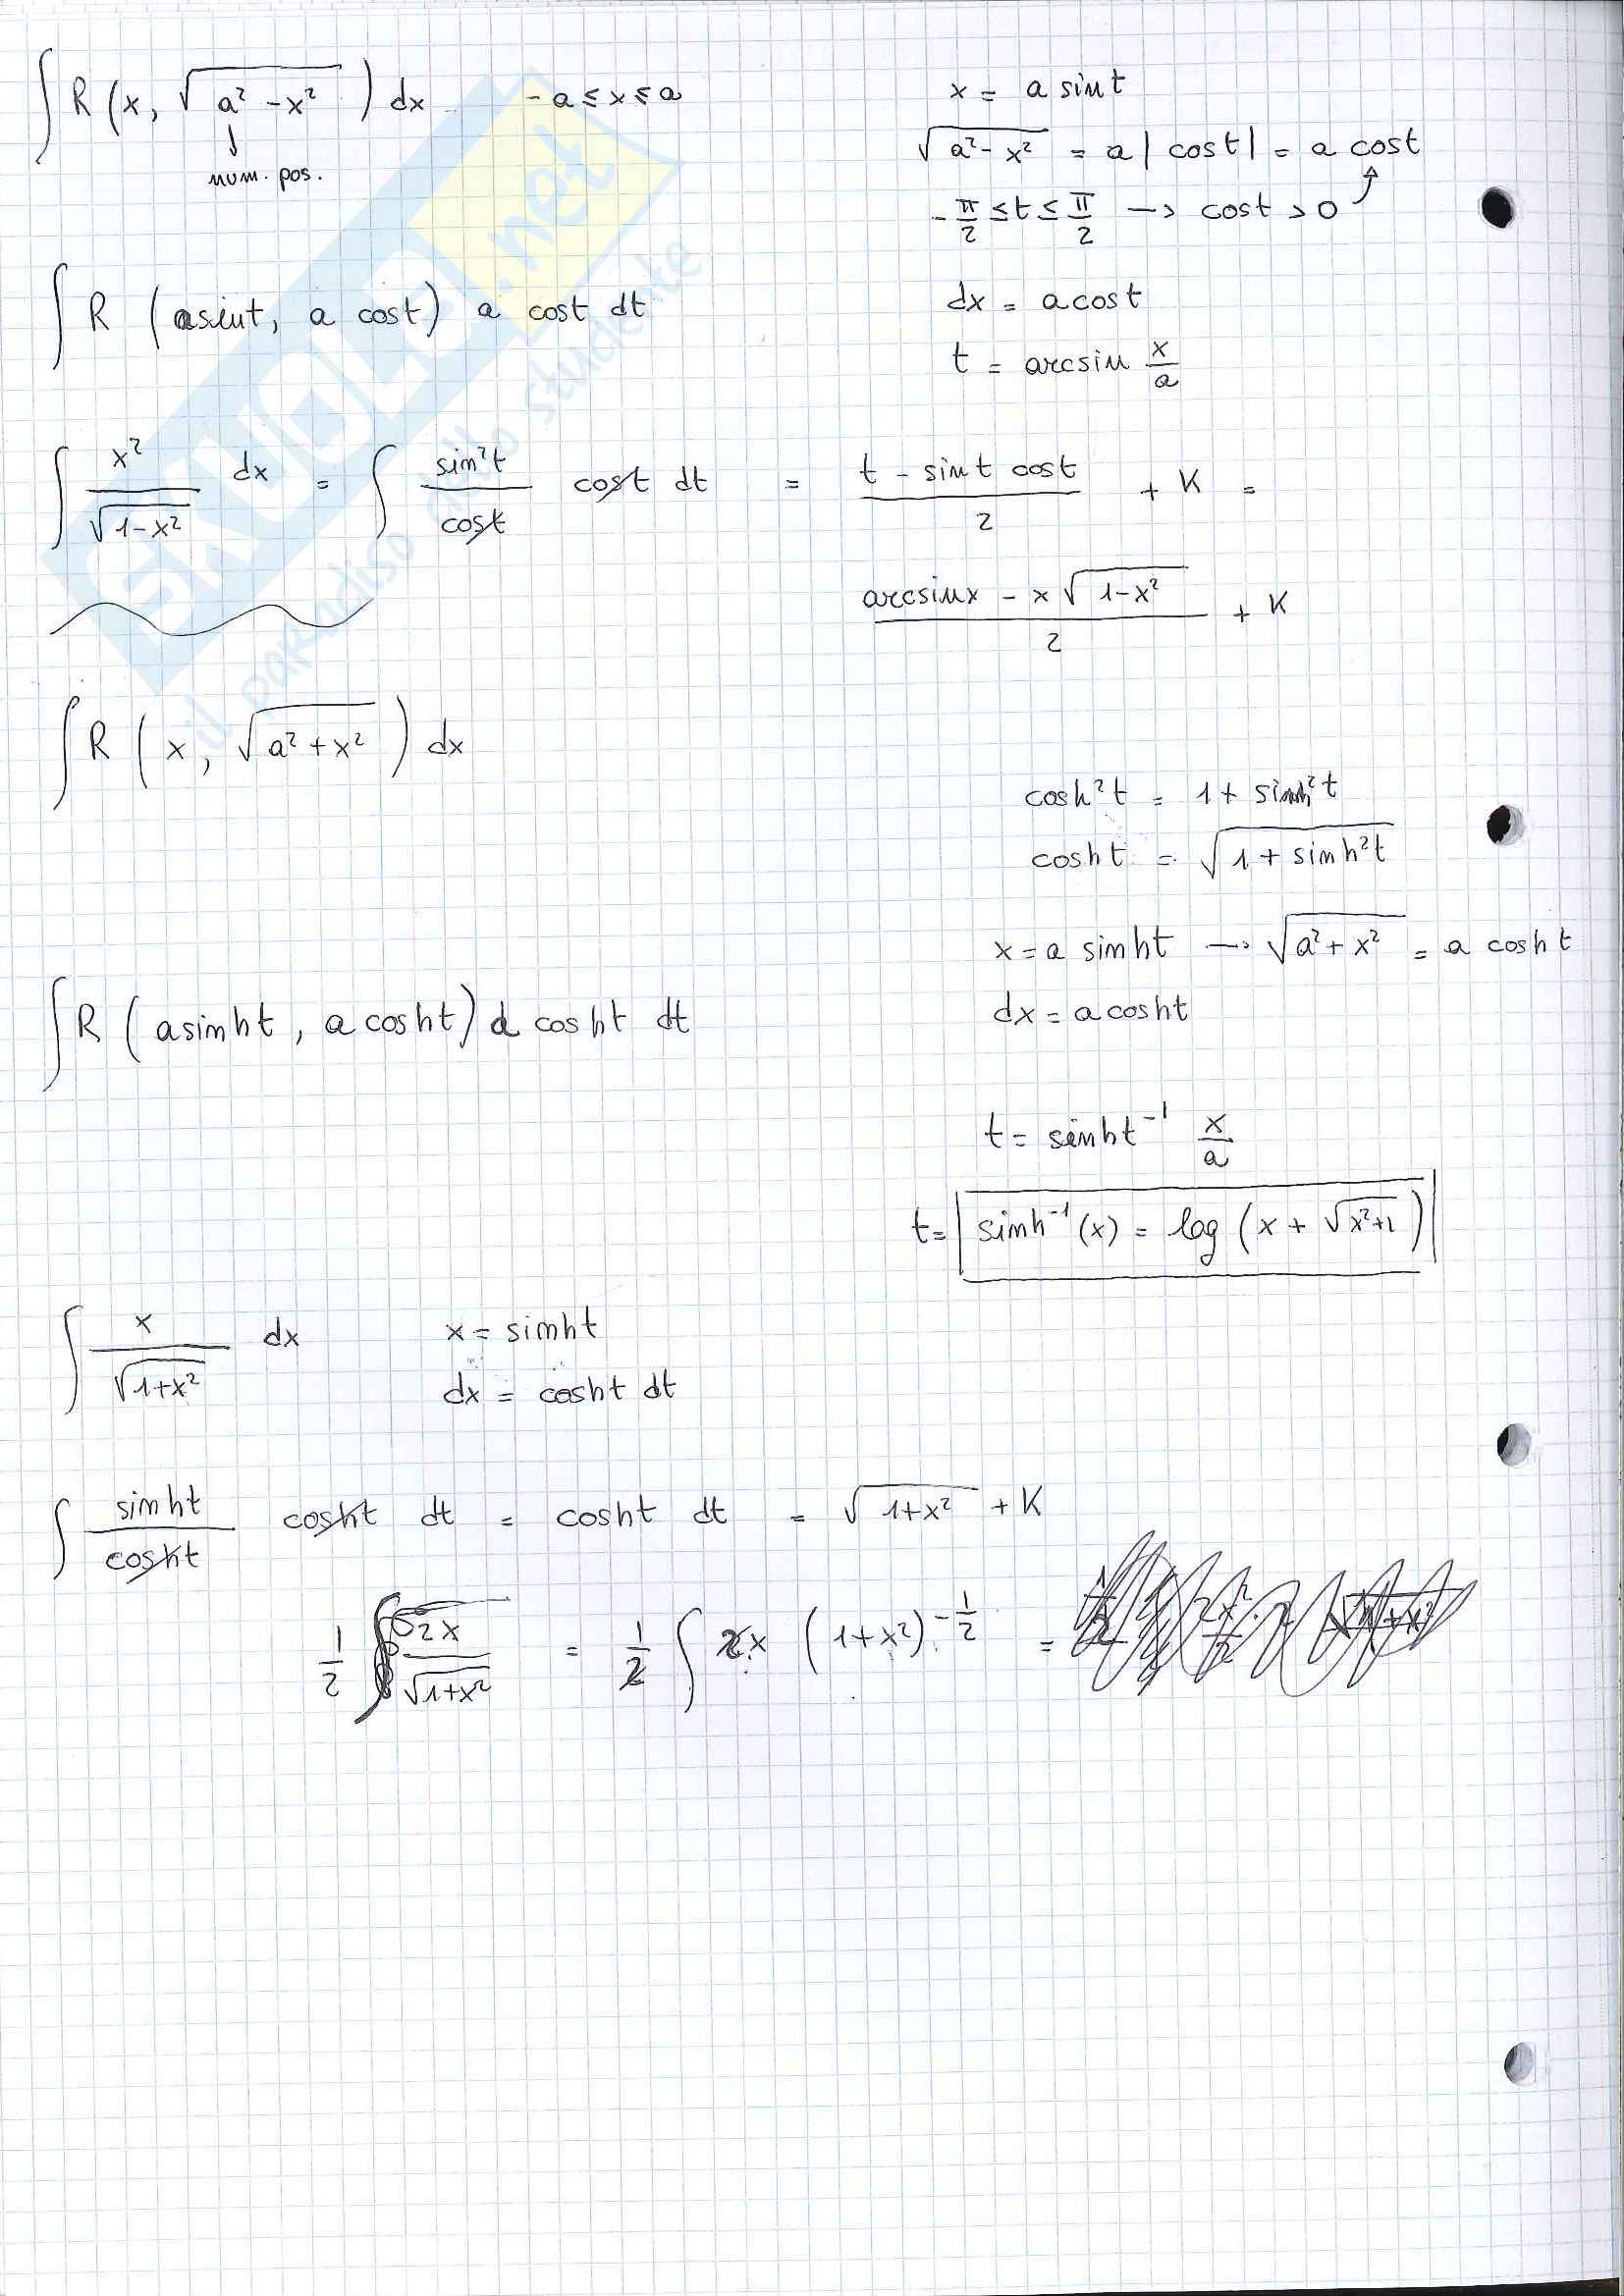 ∫ R (x, √(a² - x²)) dx   - a ≤ x ≤ a   x = a sint
↓
num. pos.
√(a² - x²) = a | cost | = a cost
- π/2 ≤ t ≤ π/2 → cost > 0
∫ R (asint, a cost) a cost dt   dx = a cost
t = arcsin x/a
∫ x²/√(1-x²) dx = ∫ sin²t/cost cost dt = (t - sint cost)/2 + K =
(arcsinx - x√(1-x²))/2 + K
∫ R (x, √(a² + x²)) dx
cosh²t = 1 + sinh²t
cosht = √(1 + sinh²t)
x = a sinht → √(a² + x²) = a cosht
∫ R (asinht, a cosht) a cosht dt   dx = a cosht
t = sinht⁻¹ x/a
t = sinh⁻¹(x) = log (x + √(x²+1))
∫ x/√(1+x²) dx   x = sinht
dx = cosht dt
∫ sinht/cosht cosht dt = cosht dt = √(1+x²) + K
1/2 ∫ 2x/√(1+x²) = 1/2 ∫ 2x (1+x²)^(-1/2) =
SKUOLA.net
il paradiso dello studente